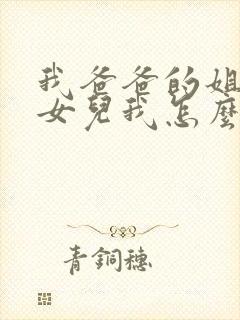 我爸爸的姐
女兒我怎麼
青銅穗